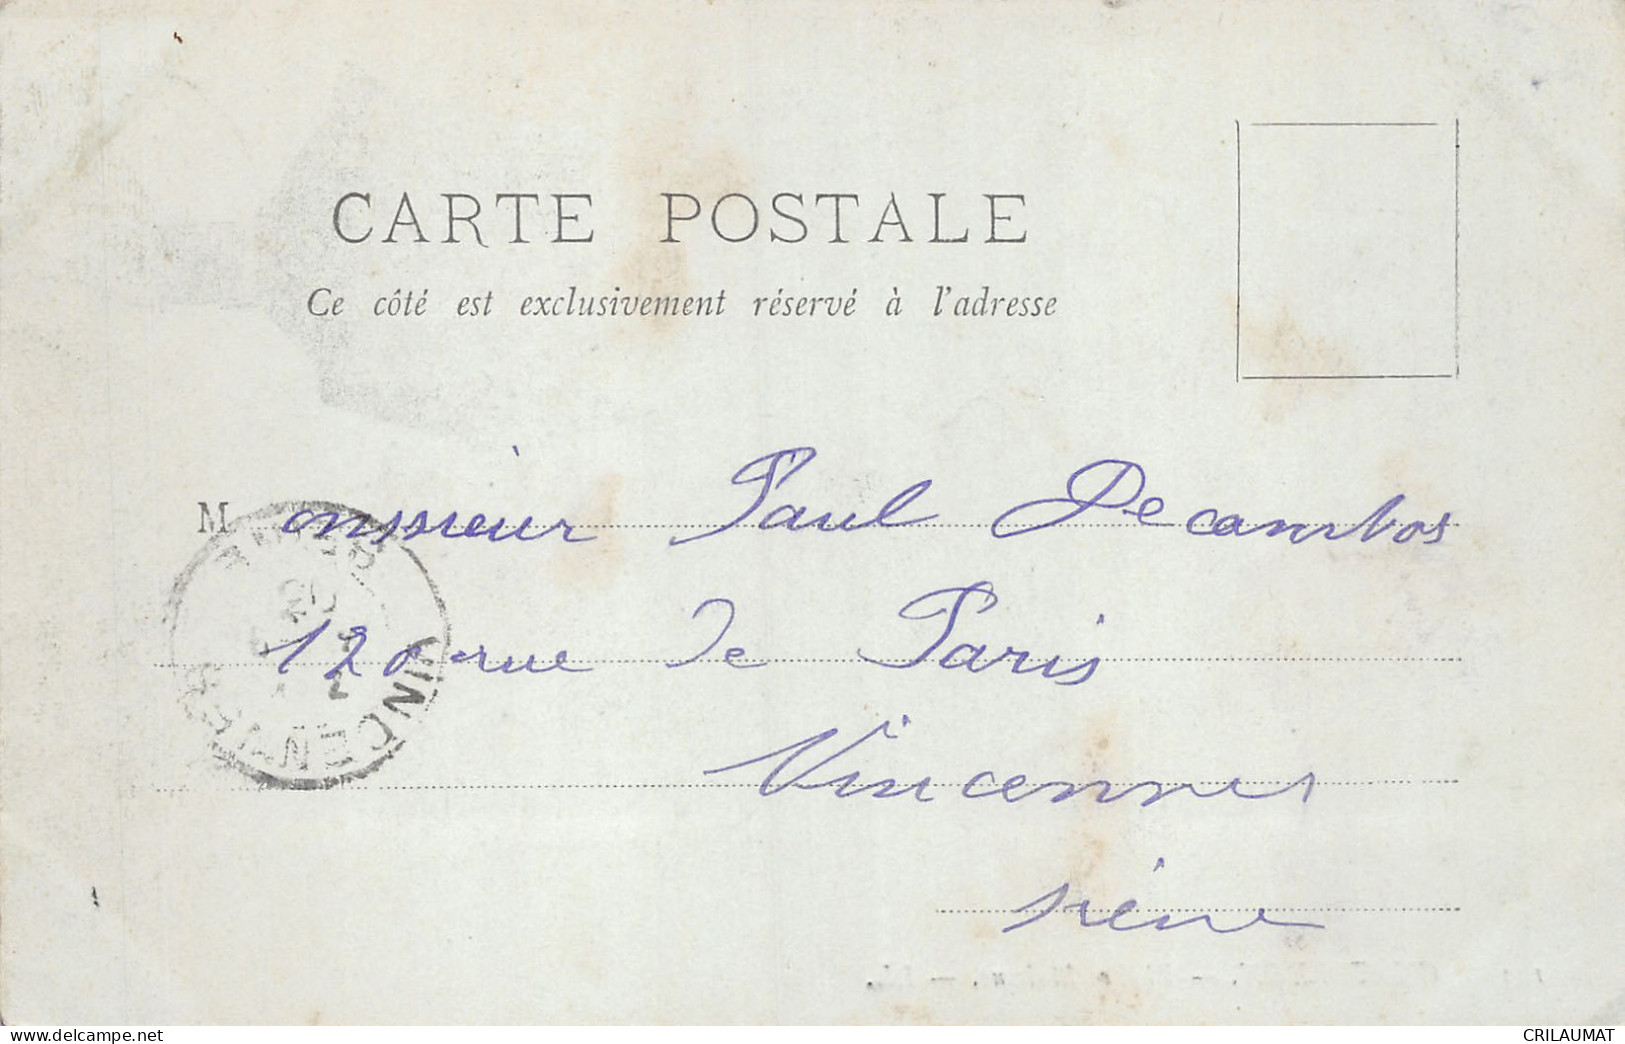 CARTE POSTALE
Ce côté est exclusivement réservé à l'adresse
Monsieur Paul Decambos
120 rue de Paris
Vincennes
Seine
VINCENNES
SEINE
www.delcampe.net
CRILAUMAT